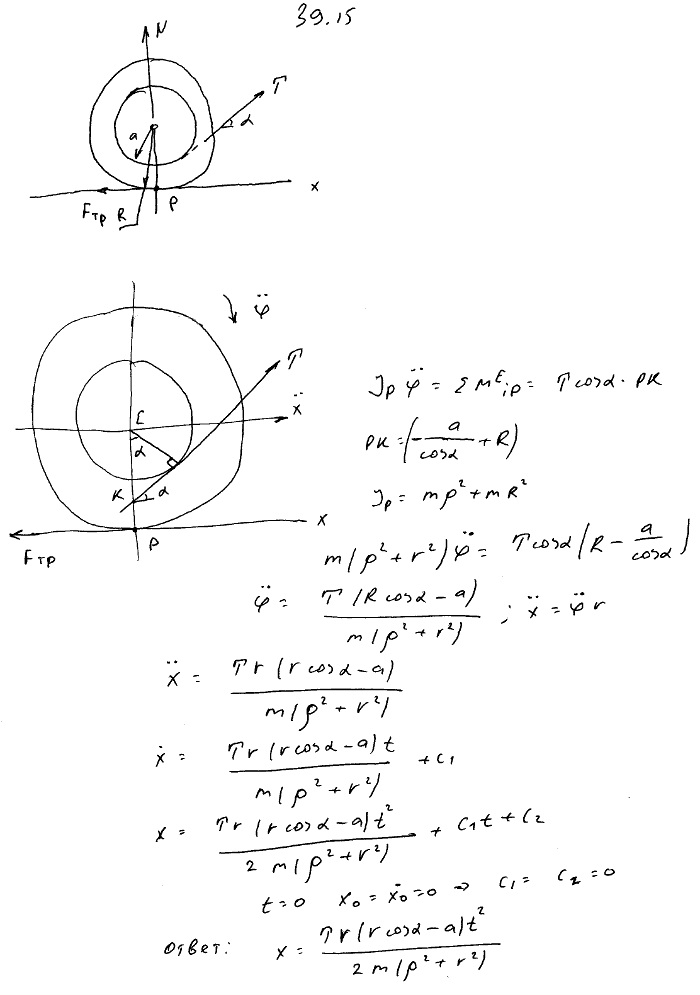 39.15
N
T
a
α
x
Fтр R P
φ̈
T
ẍ
C
α
K α
x
Fтр P
J_P φ̈ = Σ M^E_iP = T cosα · PK
PK = (- a/cosα + R)
J_P = mρ² + mR²
m(ρ² + r²) φ̈ = T cosα (R - a/cosα)
φ̈ = T (R cosα - a) / m(ρ² + r²) ; ẍ = φ̈ r
ẍ = T r (r cosα - a) / m(ρ² + r²)
ẋ = T r (r cosα - a) t / m(ρ² + r²) + C₁
x = T r (r cosα - a) t² / 2 m(ρ² + r²) + C₁t + C₂
t = 0 x₀ = ẋ₀ = 0 ⇒ C₁ = C₂ = 0
Ответ: x = T r (r cosα - a) t² / 2 m(ρ² + r²)